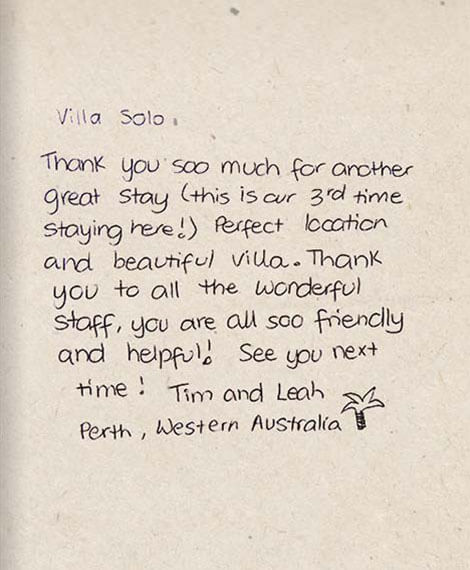 Villa Solo.
Thank you soo much for another
great stay (this is our 3rd time
staying here!) Perfect location
and beautiful villa. Thank
you to all the wonderful
staff, you are all soo friendly
and helpful! See you next
time! Tim and Leah
Perth, Western Australia